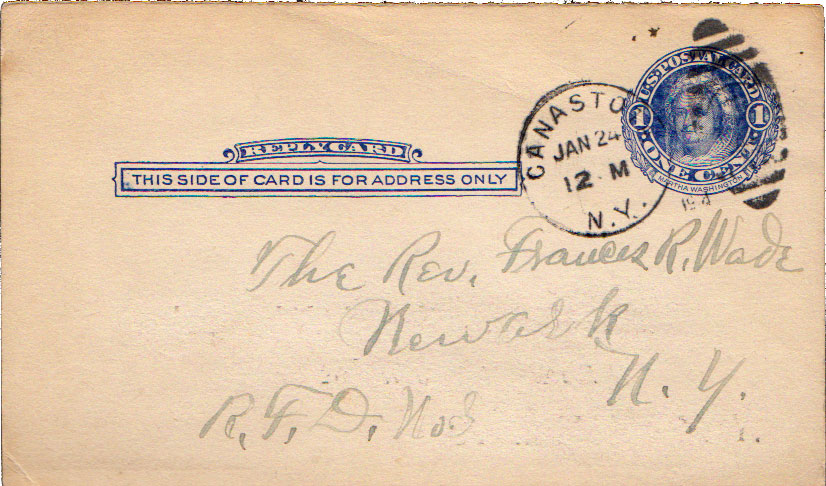 REPLY CARD
THIS SIDE OF CARD IS FOR ADDRESS ONLY
CANASTO
JAN 24
12 M
N.Y.
U.S. POSTAL CARD
1 1
ONE CENT
MARTHA WASHINGTON
The Rev. Frances R. Wade
Newark
N. Y.
R. F. D. No 3